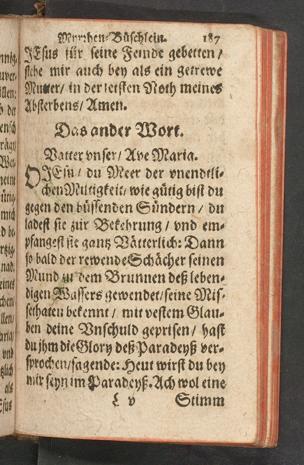 Myrrhen-Büschlein. 187
JEsus für seine Feinde gebetten /
stehe mir auch bey als ein getrewe
Mutter / in der letsten Noth meines
Absterbens / Amen.
Das ander Wort.
Vatter vnser / Ave Maria.
O JEsu / du Meer der vnendtli-
chen Miltigkeit / wie gütig bist du
gegen den büssenden Sündern / du
ladest sie zur Bekehrung / vnd em-
pfangest sie gantz Vätterlich: Dann
so bald der rewende Schächer seinen
Mund zu dem Brunnen deß leben-
digen Wassers gewendet / seine Mis-
sethaten bekennt / mit vestem Glau-
ben deine Vnschuld geprisen / hast
du jhm die Glory deß Paradeyß ver-
sprochen / sagende: Heut wirst du bey
mir seyn im Paradeyß. Ach wol eine
L v Stimm